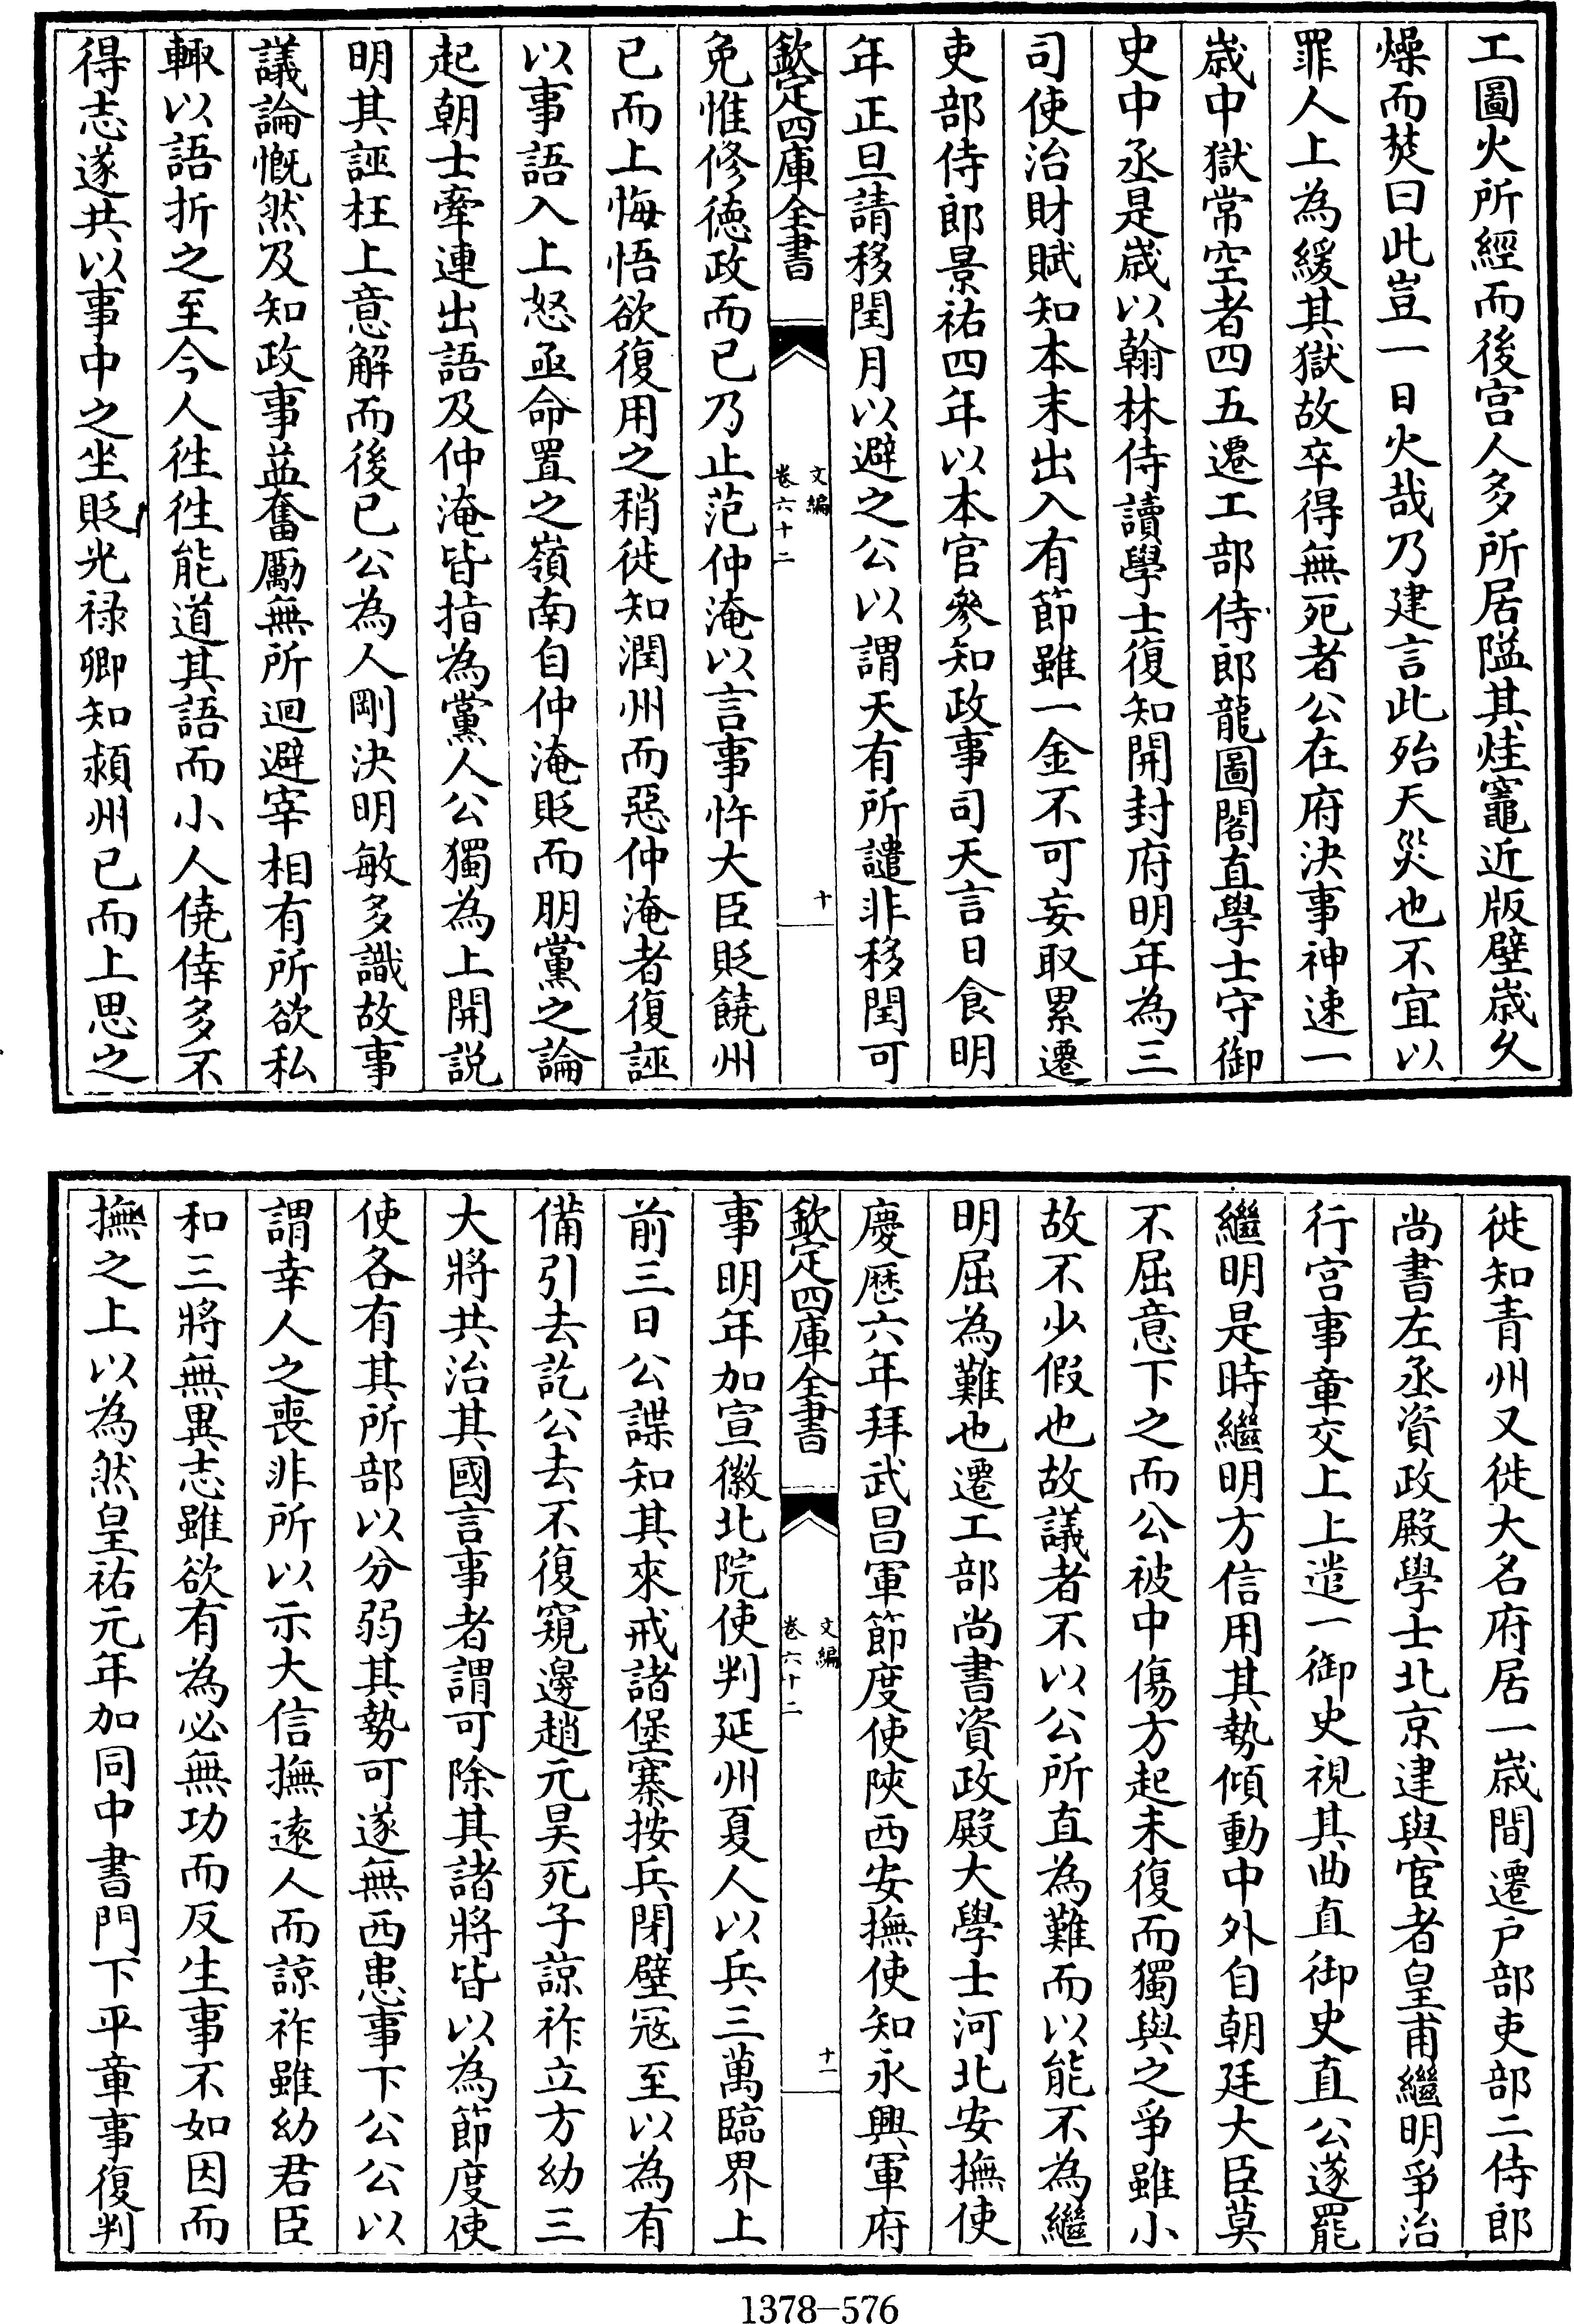 工圖火所經而後宫人多所居隘其烓竈近版壁歲久
燥而焚曰此豈一日火哉乃建言此殆天災也不宜以
罪人上為緩其獄故卒得無死者公在府决事神速一
歲中獄常空者四五遷工部侍郎龍圖閣直學士守御
史中丞是歲以翰林侍讀學士復知開封府明年為三
司使治財賦知本末出入有節雖一金不可妄取累遷
吏部侍郎景祐四年以本官參知政事司天言日食明
年正旦請移閏月以避之公以謂天有所譴非移閏可
欽定四庫全書
文編
卷六十二
十
免惟修徳政而已乃止范仲淹以言事忤大臣貶饒州
已而上悔悟欲復用之稍徙知潤州而惡仲淹者復誣
以事語入上怒亟命置之嶺南自仲淹貶而朋黨之論
起朝士牽連出語及仲淹皆指為黨人公獨為上開説
明其誣枉上意解而後已公為人剛決明敏多識故事
議論慨然及知政事益奮勵無所迴避宰相有所欲私
輙以語折之至今人徃徃能道其語而小人僥倖多不
得志遂共以事中之坐貶光禄卿知潁州已而上思之
徙知青州又徙大名府居一歲間遷户部吏部二侍郎
尚書左丞資政殿學士北京建與宦者皇甫繼明爭治
行宫事章交上上遣一御史視其曲直御史直公遂罷
繼明是時繼明方信用其勢傾動中外自朝廷大臣莫
不屈意下之而公被中傷方起未復而獨與之爭雖小
故不少假也故議者不以公所直為難而以能不為繼
明屈為難也遷工部尚書資政殿大學士河北安撫使
慶歴六年拜武昌軍節度使陜西安撫使知永興軍府
欽定四庫全書
文編
卷六十二
十一
事明年加宣徽北院使判延州夏人以兵三萬臨界上
前三日公諜知其來戒諸堡寨按兵閉壁冦至以為有
備引去訖公去不復窺邊趙元昊死子諒祚立方幼三
大將共治其國言事者謂可除其諸將皆以為節度使
使各有其所部以分弱其勢可遂無西患事下公公以
謂幸人之喪非所以示大信撫逺人而諒祚雖幼君臣
和三將無異志雖欲有為必無功而反生事不如因而
撫之上以為然皇祐元年加同中書門下平章事復判
1378-576